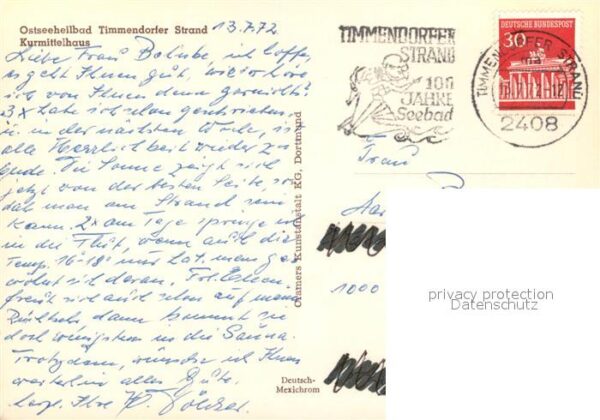 Ostseeheilbad Timmendorfer Strand
Kurmittelhaus
13.7.72
Liebe Frau, ich hoffe,
es geht Ihnen gut, wie höre
sich von Ihnen denn garnicht?
3 x habe ich schon geschrieben,
in der nächsten Woche, is
alle Herrlichkeit wieder zu
Ende. Die Sonne zeigt sich
jetzt von der besten Seite, so
daß man am Strand sein
kann. 2x am Tage springe ich
in die Flut, wenn auch die
Temp. 16-18° nur hat, man ge
wöhnt sich daran. Frl.
freut sich auch schon auf meine
Rückkehr, dann kommt sie
doch wenigstens in die Sauna.
Trotzdem, wünsche ich Ihnen
weiterhin alles Gute.
Herzl. Ihre
Cramers Kunstanstalt KG, Dortmund
Deutsch-
Mexichrom
TIMMENDORFER
STRAND
100
JAHRE
Seebad
DEUTSCHE BUNDESPOST
30
TIMMENDORFER STRAND
2408
Frau
1000
privacy protection
Datenschutz